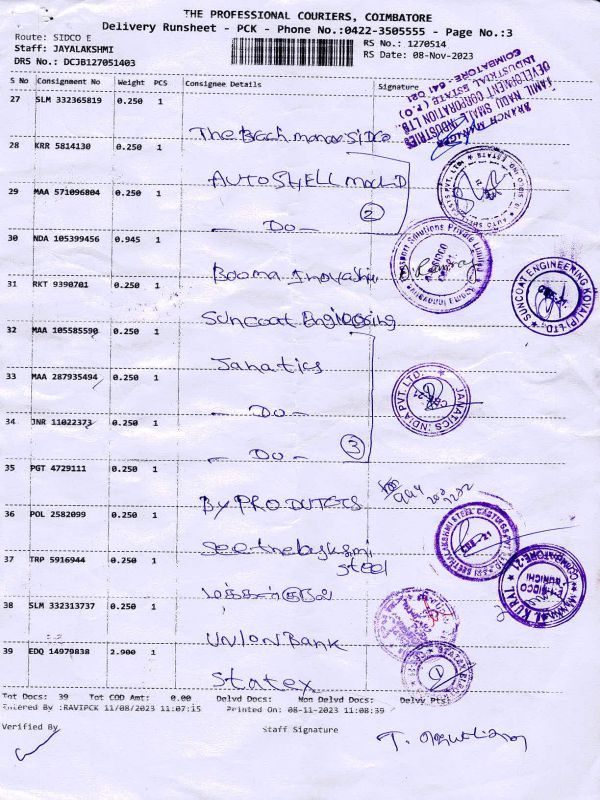 THE PROFESSIONAL COURIERS, COIMBATORE
Delivery Runsheet - PCK - Phone No.:0422-3505555 - Page No.:3
Route: SIDCO E
RS No.: 1270514
Staff: JAYALAKSHMI
RS Date: 08-Nov-2023
DRS No.: DCJB127051403
S No Consignment No Weight PCS Consignee Details Signature
27 SLM 332365819 0.250 1
BRANCH MANAGER
TAMIL NADU SMALL INDUSTRIES
DEVELOPMENT CORPORATION LTD.
INDUSTRIAL ESTATE (P.O)
COIMBATORE - 641 021
28 KRR 5814130 0.250 1
AUTOSHELL
29 MAA 571096804 0.250 1
— Do —
2
30 NDA 105399456 0.945 1
Solutions Private Limited
31 RKT 9390701 0.250 1
Suncoat Engineering
SUNCOAT ENGINEERING KOVAI (P) LTD.
32 MAA 105585590 0.250 1
Janatics
33 MAA 287935494 0.250 1
— Do —
JANATICS INDIA PVT. LTD.
34 JNR 11022373 0.250 1
— Do —
3
35 PGT 4729111 0.250 1
By PRODUTETS
36 POL 2582099 0.250 1
steel
37 TRP 5916944 0.250 1
MAKKAL KURAL
COIMBATORE-21
38 SLM 332313737 0.250 1
UNION BANK
39 EDQ 14979838 2.900 1
Statex
Tot Docs: 39 Tot COD Amt: 0.00 Delvd Docs: Non Delvd Docs: Delvy Pts:
Entered By :RAVIPCK 11/08/2023 11:07:15 Printed On: 08-11-2023 11:08:39
Verified By
Staff Signature